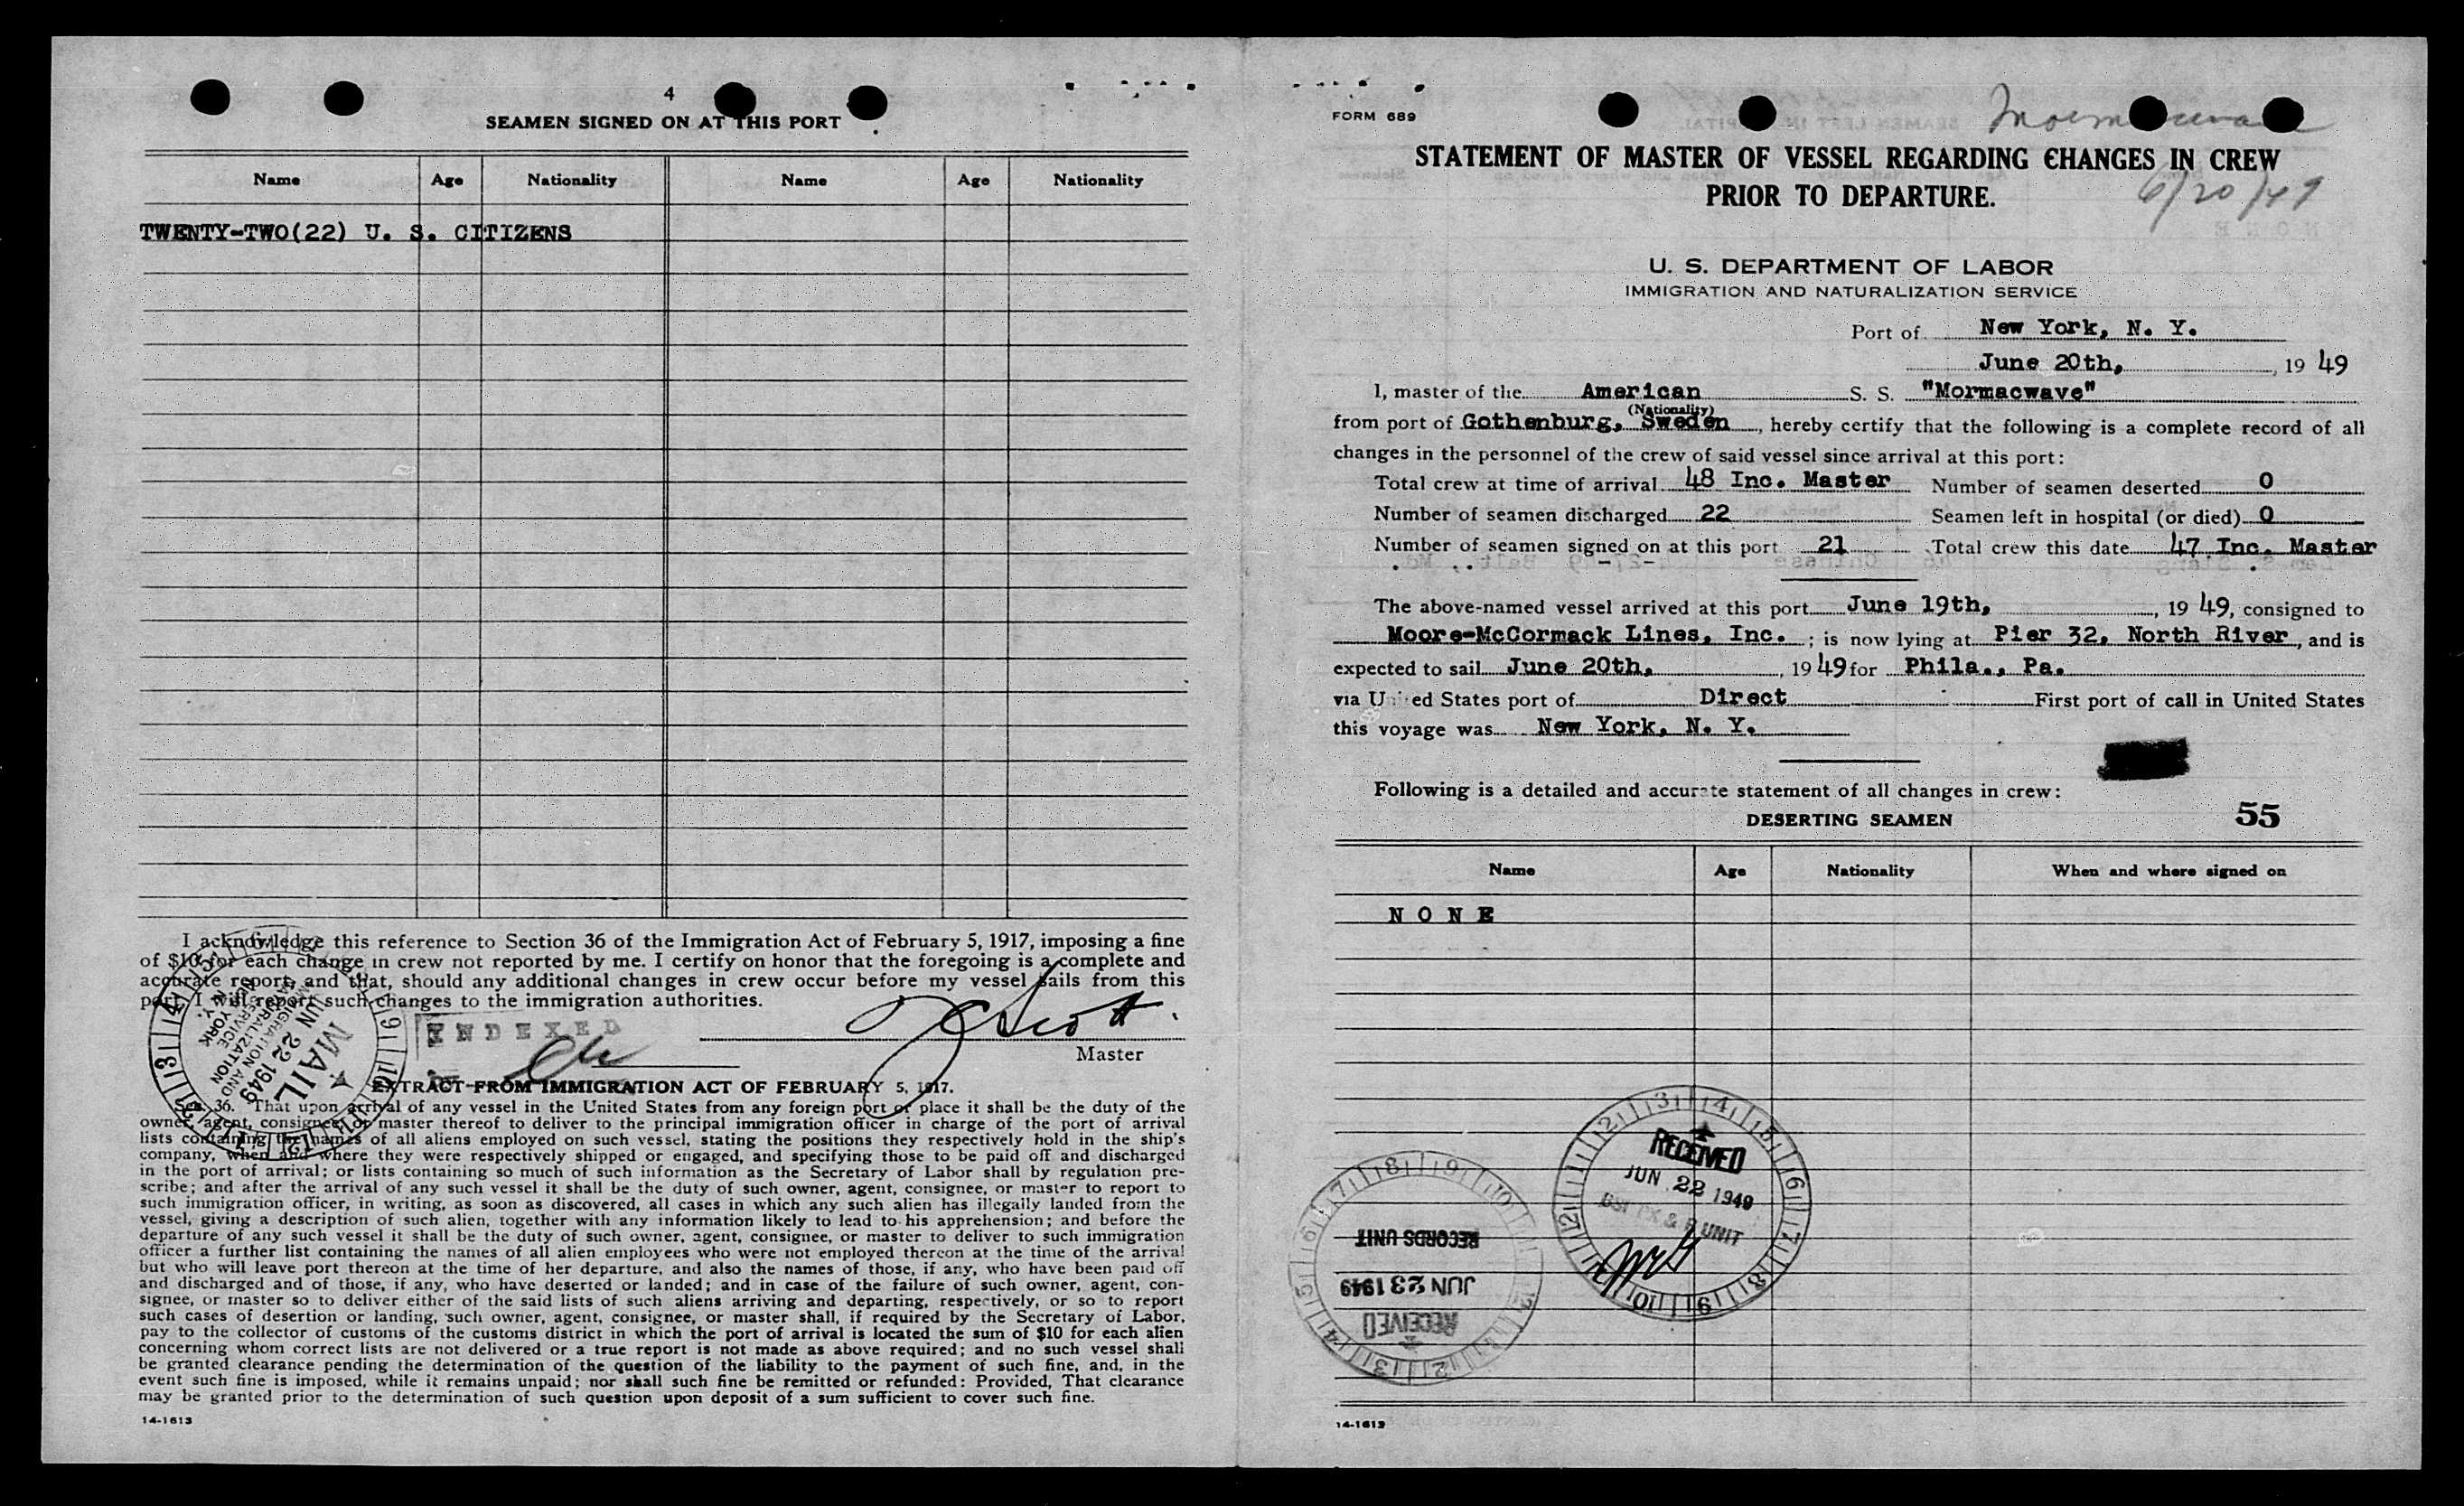 4
SEAMEN SIGNED ON AT THIS PORT
Name Age Nationality Name Age Nationality
TWENTY-TWO(22) U. S. CITIZENS
I acknowledge this reference to Section 36 of the Immigration Act of February 5, 1917, imposing a fine
of $10 for each change in crew not reported by me. I certify on honor that the foregoing is a complete and
accurate report, and that, should any additional changes in crew occur before my vessel sails from this
port, I will report such changes to the immigration authorities.
INDEXED
Scott
Master
MAIL
JUN 22 1949
IMMIGRATION AND
NATURALIZATION
SERVICE
NEW YORK
N. Y.
EXTRACT FROM IMMIGRATION ACT OF FEBRUARY 5, 1917.
Sec. 36. That upon arrival of any vessel in the United States from any foreign port or place it shall be the duty of the
owner, agent, consignee, or master thereof to deliver to the principal immigration officer in charge of the port of arrival
lists containing the names of all aliens employed on such vessel, stating the positions they respectively hold in the ship's
company, when and where they were respectively shipped or engaged, and specifying those to be paid off and discharged
in the port of arrival; or lists containing so much of such information as the Secretary of Labor shall by regulation pre-
scribe; and after the arrival of any such vessel it shall be the duty of such owner, agent, consignee, or master to report to
such immigration officer, in writing, as soon as discovered, all cases in which any such alien has illegally landed from the
vessel, giving a description of such alien, together with any information likely to lead to his apprehension; and before the
departure of any such vessel it shall be the duty of such owner, agent, consignee, or master to deliver to such immigration
officer a further list containing the names of all alien employees who were not employed thereon at the time of the arrival
but who will leave port thereon at the time of her departure, and also the names of those, if any, who have been paid off
and discharged and of those, if any, who have deserted or landed; and in case of the failure of such owner, agent, con-
signee, or master so to deliver either of the said lists of such aliens arriving and departing, respectively, or so to report
such cases of desertion or landing, such owner, agent, consignee, or master shall, if required by the Secretary of Labor,
pay to the collector of customs of the customs district in which the port of arrival is located the sum of $10 for each alien
concerning whom correct lists are not delivered or a true report is not made as above required; and no such vessel shall
be granted clearance pending the determination of the question of the liability to the payment of such fine, and, in the
event such fine is imposed, while it remains unpaid; nor shall such fine be remitted or refunded: Provided, That clearance
may be granted prior to the determination of such question upon deposit of a sum sufficient to cover such fine.
14-1613
FORM 689
Mormacwave
STATEMENT OF MASTER OF VESSEL REGARDING CHANGES IN CREW
PRIOR TO DEPARTURE.
6/20/49
U. S. DEPARTMENT OF LABOR
IMMIGRATION AND NATURALIZATION SERVICE
Port of New York, N. Y.
June 20th, , 19 49
I, master of the American S. S. "Mormacwave"
(Nationality)
from port of Gothenburg, Sweden , hereby certify that the following is a complete record of all
changes in the personnel of the crew of said vessel since arrival at this port:
Total crew at time of arrival 48 Inc. Master Number of seamen deserted 0
Number of seamen discharged 22 Seamen left in hospital (or died) 0
Number of seamen signed on at this port 21 Total crew this date 47 Inc. Master
The above-named vessel arrived at this port June 19th, , 19 49, consigned to
Moore-McCormack Lines, Inc. ; is now lying at Pier 32, North River , and is
expected to sail June 20th, , 19 49 for Phila., Pa.
via United States port of Direct First port of call in United States
this voyage was New York, N. Y.
Following is a detailed and accurate statement of all changes in crew:
DESERTING SEAMEN 55
Name Age Nationality When and where signed on
N O N E
RECEIVED
JUN 22 1949
UNIT
RECORDS UNIT
JUN 23 1949
RECEIVED
14-1613